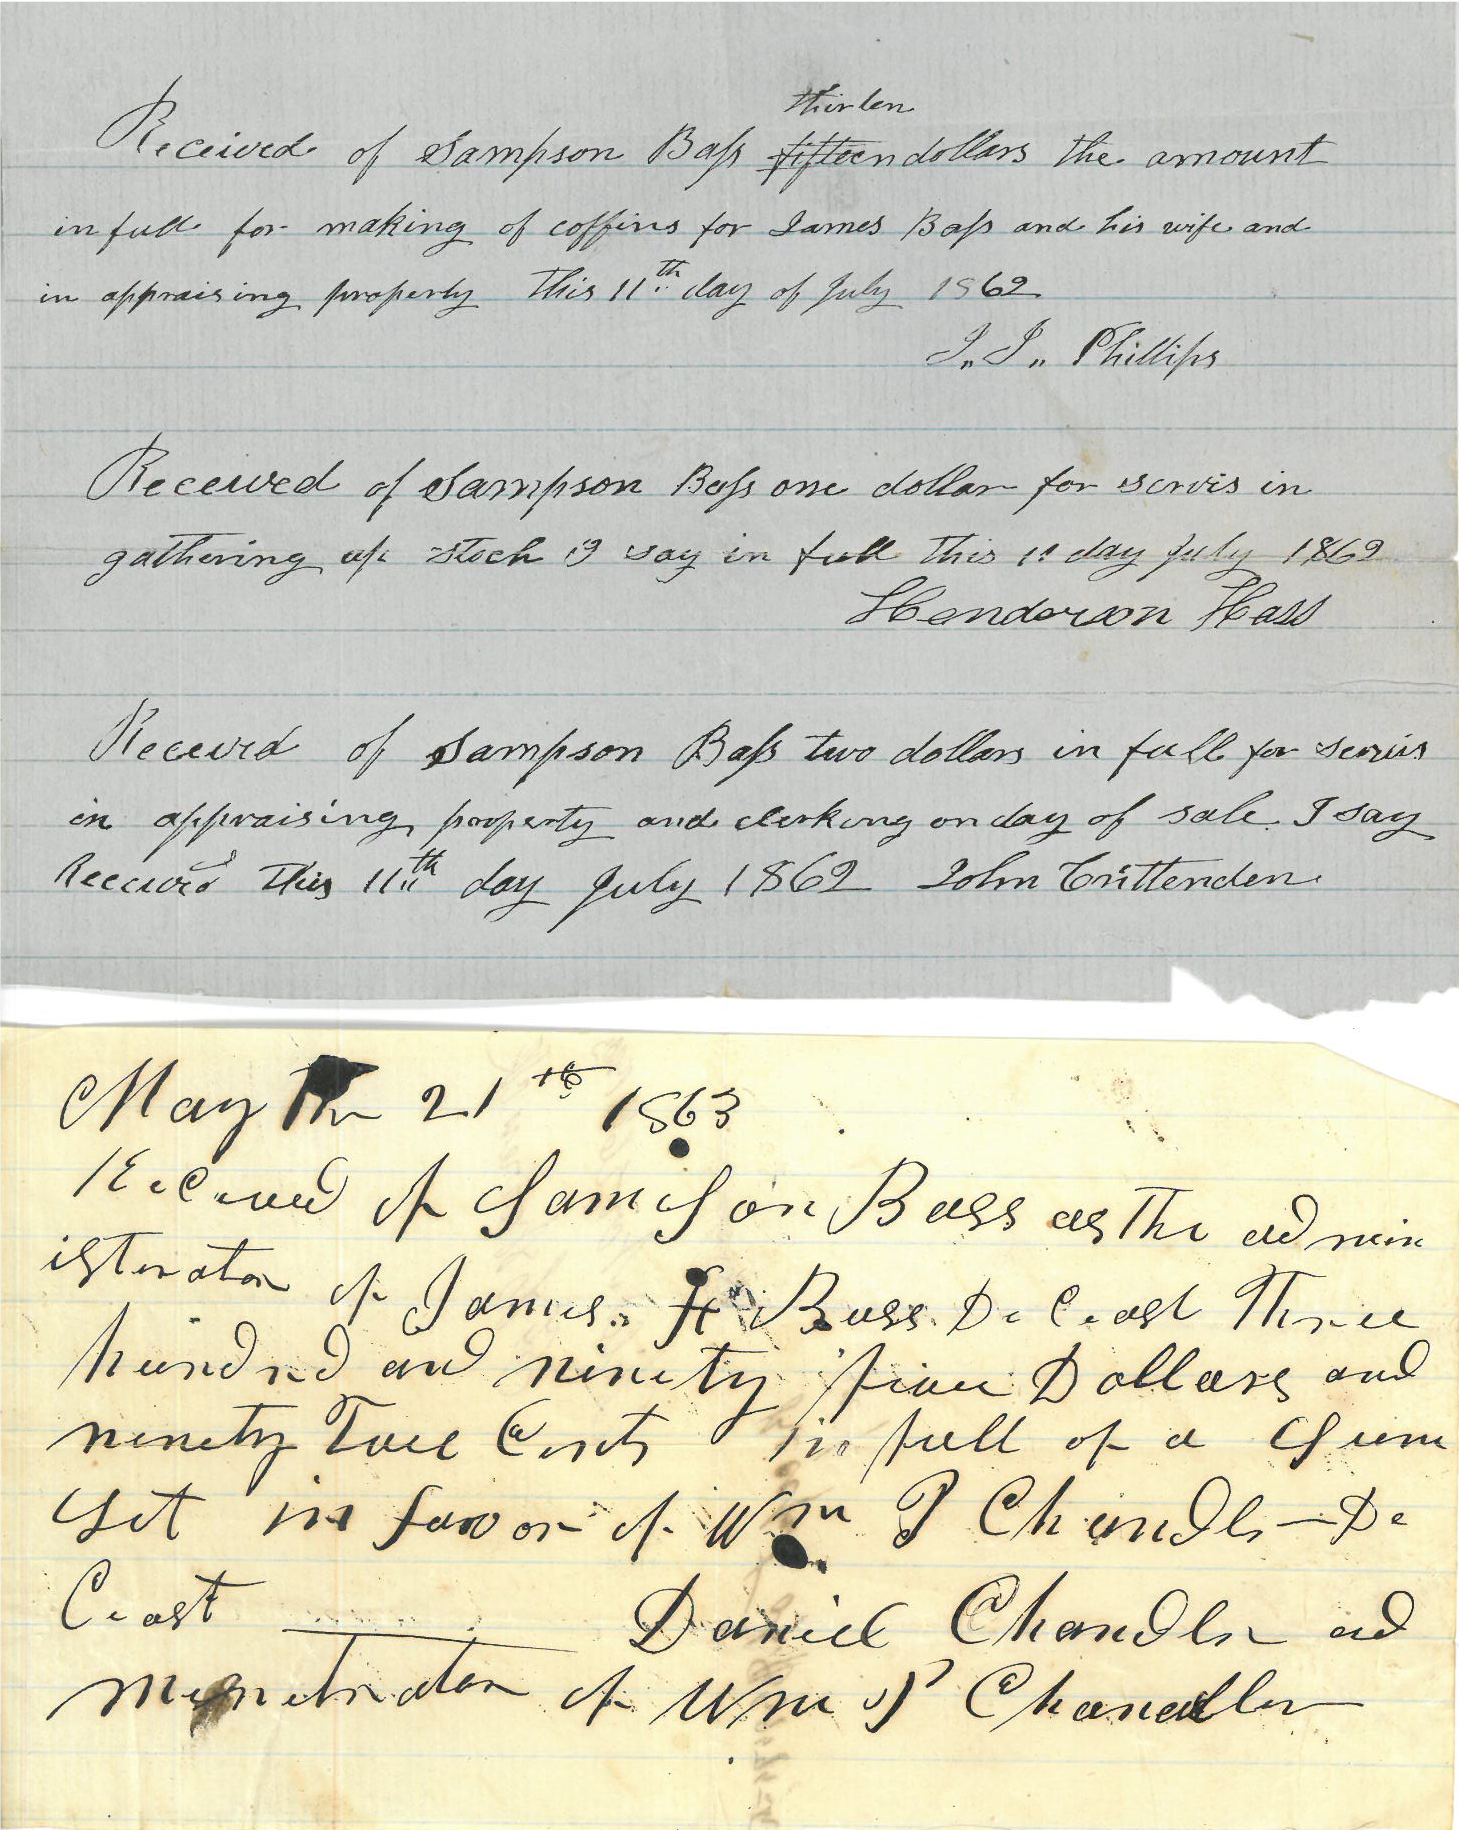 thirten
Received of Sampson Bass fifteen dollars the amount
in full for making of coffins for James Bass and his wife and
in appraising property this 11th day of July 1862
J. J. Phillips
Received of Sampson Bass one dollar for servis in
gathering up stock I say in full this 11 day July 1862
Henderson Hass
Received of Sampson Bass two dollars in full for servis
in appraising property and clerking on day of sale I say
Received this 11th day July 1862 John Crittenden
May the 21th 1863
Received of Samson Bass as the admin
isterator of James H Bass De Ceast Three
hundrd and ninety five Dollars and
ninety Two Cents in full of a Sum
Set in favor of Wm P Chandler De
Ceast Daniel Chandler ad
menetrator of Wm P Chandler